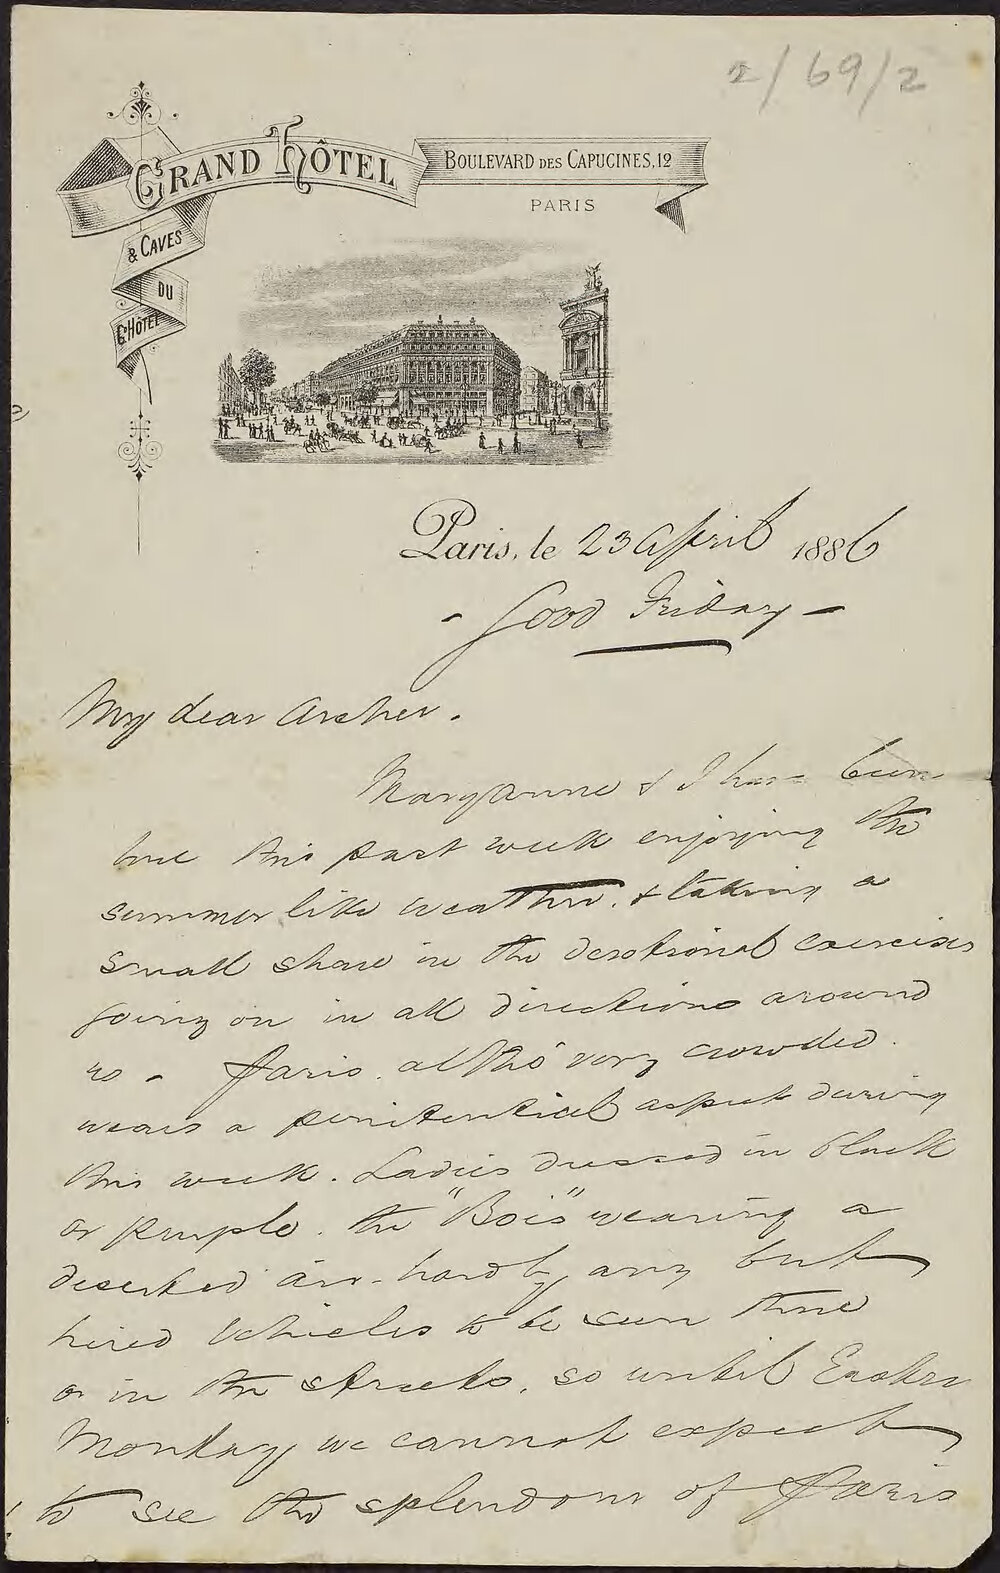 2/69/2
GRAND HÔTEL
BOULEVARD DES CAPUCINES, 12
PARIS
& CAVES
DU
Gᴰ HÔTEL
Paris, le 23 April 1886
- Good Friday -
My dear Archer.
Maryanne & I have been
here this past week enjoying the
summer like weather. & taking a
small share in the devotional exercises
going on in all directions around
us - Paris. altho' very crowded.
wears a penitential aspect during
this week. Ladies dressed in black
or purple. the "Bois" wearing a
deserted air - hardly any but
hired vehicles to be seen there
or in the streets. so until Easter
Monday we cannot expect
to see the splendour of Paris